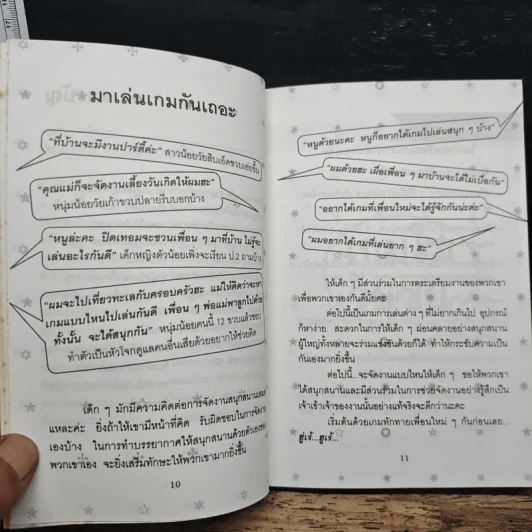 มาเล่นเกมกันเถอะ
“ที่บ้านจะมีงานปาร์ตี้ค่ะ” สาวน้อยวัยสิบเอ็ดขวบเอ่ยขึ้น
“คุณแม่ก็จะจัดงานเลี้ยงวันเกิดให้ผมฮะ”
หนุ่มน้อยวัยเก้าขวบปลายรีบบอกบ้าง
“หนูล่ะคะ ปิดเทอมจะชวนเพื่อน ๆ มาที่บ้าน ไม่รู้จะ
เล่นอะไรกันดี” เด็กหญิงตัวน้อยเพิ่งจะเรียน ป.2 ถามบ้าง
“ผมจะไปเที่ยวทะเลกับครอบครัวฮะ แม่ให้คิดว่าจะหา
เกมแบบไหนไปเล่นกันดี เพื่อน ๆ พ่อแม่พาลูกไปด้วย
ทั้งนั้น จะได้สนุกกัน” หนุ่มน้อยคนนี้ 12 ขวบแล้วชอบ
ทำตัวเป็นหัวโจกดูแลคนอื่นเสียด้วยอยากให้ช่วยคิด
เด็ก ๆ มักมีความคิดต่อการจัดงานสนุกสนานเสมอ
แหละค่ะ ยิ่งถ้าให้เขามีหน้าที่คิด รับผิดชอบในการจัดงาน
เองบ้าง ในการทำบรรยากาศให้สนุกสนานด้วยตัวเองของ
พวกเขาเอง จะยิ่งเสริมทักษะให้พวกเขามากยิ่งขึ้น
10
“หนูด้วยนะคะ หนูก็อยากได้เกมไปเล่นสนุก ๆ บ้าง”
“ผมด้วยฮะ เผื่อเพื่อน ๆ มาบ้านจะได้ไม่เบื่อกัน”
“อยากได้เกมที่เพื่อนใหม่จะได้รู้จักกันน่ะค่ะ”
“ผมอยากได้เกมที่เล่นยาก ๆ ฮะ”
ให้เด็ก ๆ มีส่วนร่วมในการตระเตรียมงานของพวกเขา
เพื่อพวกเขาเองกันดีมั้ยคะ
ต่อไปนี้เป็นเกมการเล่นต่าง ๆ ที่ไม่ยากเกินไป อุปกรณ์
ก็หาง่าย สะดวกในการให้เด็ก ๆ ผ่อนคลายอย่างสนุกสนาน
ผู้ใหญ่ทั้งหลายจะร่วมแข่งขันด้วยก็ได้ ทำให้กระชับความเป็น
กันเองมากยิ่งขึ้น
ต่อไปนี้...จะจัดงานแบบไหนให้เด็ก ๆ ขอให้พวกเขา
ได้สนุกสนานและมีส่วนร่วมในการช่วยจัดงานอย่างรู้สึกเป็น
เจ้าเข้าเจ้าของงานนั้นอย่างแท้จริงจะดีกว่านะคะ
เริ่มต้นด้วยเกมทักทายเพื่อนใหม่ ๆ กันก่อนเลย...
ฮูเร้...ฮูเร้...
11